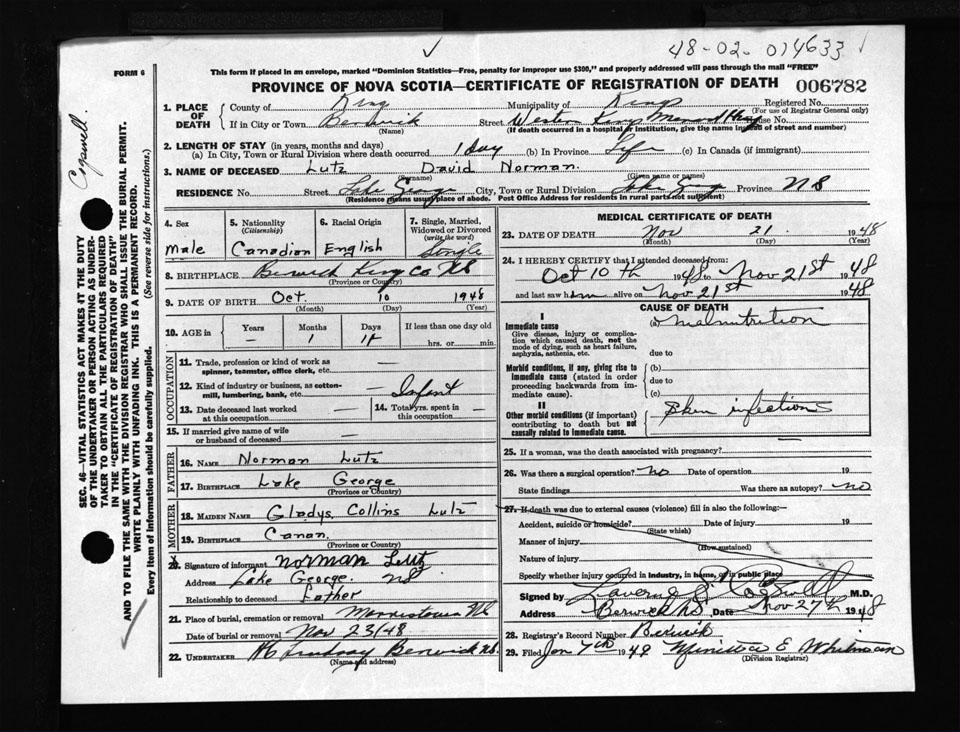 48-02-014633
FORM 6
This form if placed in an envelope, marked "Dominion Statistics—Free, penalty for improper use $300," and properly addressed will pass through the mail "FREE"
PROVINCE OF NOVA SCOTIA—CERTIFICATE OF REGISTRATION OF DEATH
006782
1. PLACE OF DEATH
County of King Municipality of Kings Registered No.
(For use of Registrar General only)
If in City or Town Berwick Street Western Kings Memorial House No.
(Name) (If death occurred in a hospital or institution, give the name instead of street and number)
2. LENGTH OF STAY (in years, months and days)
(a) In City, Town or Rural Division where death occurred 1 Day (b) In Province Life (c) In Canada (if immigrant)
3. NAME OF DECEASED Lutz David Norman.
(Surname) (Given name or names)
RESIDENCE No. Street Lake George City, Town or Rural Division Lake George Province NS
(Residence means usual place of abode. Post Office Address for residents in rural parts not sufficient)
4. Sex
Male
5. Nationality
(Citizenship)
Canadian
6. Racial Origin
English
7. Single, Married, Widowed or Divorced
(write the word)
Single
8. BIRTHPLACE Berwick King Co NS
(Province or Country)
9. DATE OF BIRTH Oct. 10 1948
(Month) (Day) (Year)
10. AGE in
Years Months Days If less than one day old
— 1 11 hrs. or min.
OCCUPATION
11. Trade, profession or kind of work as spinner, teamster, office clerk, etc. —
12. Kind of industry or business, as cotton-mill, lumbering, bank, etc. — Infant
13. Date deceased last worked at this occupation —
14. Total yrs. spent in this occupation —
15. If married give name of wife or husband of deceased —
FATHER
16. NAME Norman Lutz
17. BIRTHPLACE Lake George
(Province or Country)
MOTHER
18. MAIDEN NAME Gladys Collins Lutz
19. BIRTHPLACE Canan.
(Province or Country)
20. Signature of informant Norman Lutz
Address Lake George. NS
Relationship to deceased Father
21. Place of burial, cremation or removal Morristown NS
Date of burial or removal Nov 23/48
22. UNDERTAKER Lindsay Berwick NS.
(Name and address)
MEDICAL CERTIFICATE OF DEATH
23. DATE OF DEATH Nov 21 1948
(Month) (Day) (Year)
24. I HEREBY CERTIFY that I attended deceased from:
Oct 10th 1948 to Nov 21st 1948
and last saw him alive on Nov 21st 1948
CAUSE OF DEATH
I
Immediate cause
Give disease, injury or complication which caused death, not the mode of dying, such as heart failure, asphyxia, asthenia, etc.
(a) Malnutrition
due to
Morbid conditions, if any, giving rise to immediate cause (stated in order proceeding backwards from immediate cause).
(b)
due to
(c)
II
Other morbid conditions (if important) contributing to death but not causally related to immediate cause.
Skin infection
25. If a woman, was the death associated with pregnancy? —
26. Was there a surgical operation? no Date of operation 19
State findings Was there an autopsy? no
27. If death was due to external causes (violence) fill in also the following:—
Accident, suicide or homicide? Date of injury 19
(State which)
Manner of injury
(How sustained)
Nature of injury
Specify whether injury occurred in industry, in home, or in public place
Signed by M.D.
Address Berwick NS. Date Nov 27th 1948
28. Registrar's Record Number Berwick
29. Filed Jan 7th 1949 E Whitman
(Division Registrar)
Cogswell
SEC. 46—VITAL STATISTICS ACT MAKES IT THE DUTY OF THE UNDERTAKER OR PERSON ACTING AS UNDERTAKER TO OBTAIN ALL THE PARTICULARS REQUIRED IN THE "CERTIFICATE OF REGISTRATION OF DEATH" AND TO FILE THE SAME WITH THE DIVISION REGISTRAR WHO SHALL ISSUE THE BURIAL PERMIT.
WRITE PLAINLY WITH UNFADING INK. THIS IS A PERMANENT RECORD.
Every item of Information should be carefully supplied. (See reverse side for instructions.)